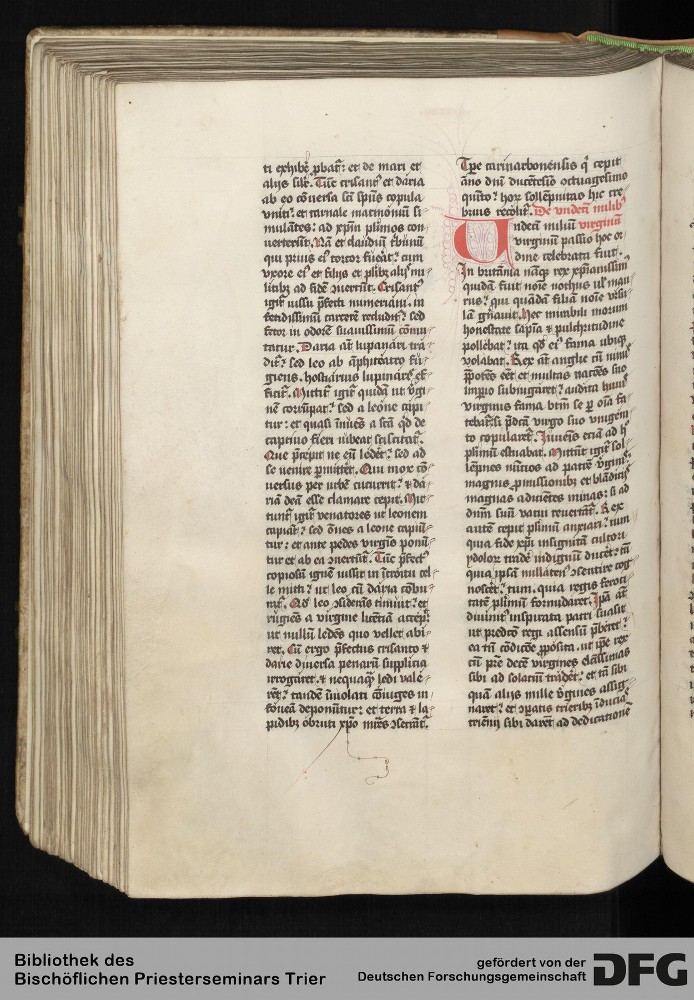 ti exhibe᷑ ꝓbat᷑: et de mari et
alijs silr̄. Tūc crisant᷒ et daria
ab eo cōuersa sci̅ spūs copula
vniti. et carnale matrimoniū si
mulātes: ad xp̄m plīmos con
uerterūt. Nā et claudiū tbūnū
qui prius ei᷒ tortor fuēat: cum
vxore ei᷒ et filijs et plībꝫ alijs mi
litibꝫ ad fidē ꝯuertūt. Crisant᷒
igit᷑ iussu p̄fecti numeriani. in
fetidissimū carcerē recludit᷑: sed
fetor in odorē suauissimū cōmu
tatur. Daria aūt lupanari tra
dit᷑: sed leo ab āphiteatro fu
giens. hostiarius lupinaris eff
ficit᷑. Mittit᷑ igit᷑ quidā ut v̓gi
nē corrūpat: sed a leone capi
tur: et quasi innuēs a scā qd̄ de
captiuo fieri iubeat sciscitat᷑.
Que p̄cepit ne eū ledet: sed ad
se venire ꝑmittet. Qui mox cō
uersus per urbē cucurrit: ⁊ da
riā deā esse clamare cepit. Mit
tunt᷑ igit᷑ venatores ut leonem
capiāt: sed om̄es a leone capiū
tur: et ante pedes virgīs ponū
tur et ab ea ꝯuertūt᷑. Tūc p̄fect᷒
copiosū ignē iussit in ītroitu cel
le mitti: ut leo cū daria cōbu
rat᷑. Qd̄ leo ꝯsiderās timuit: et
rugiēs a virgine licētia accepit
ut nullū ledēs quo vellet abi
ret. Cū ergo p̄fectus crisanto ⁊
darie diuersa penarū supplicia
irrogaret. ⁊ nequaqꝫ ledi vale
rēt: tandē inuiolati cōiuges in
foueā deponūtur: et terra ⁊ la
pidibꝫ obruti xp̄o mr̄es ꝯsecrāt᷑.
Tꝑe carinarbonensis q̄ cepit
āno dn̄i ducētesīo octuagesimo
quīto: hoꝝ sollēpnitas hic cre
brius recolit᷑. De vndecī milibꝫ
Undecī miliū virginū
virginū passio hoc or
dine celebrata fuit.
In britānia nāqꝫ rex xp̄ianissim᷒
quidā fuit noīe nothus ul̓ mau
rus: qui quādā filiā noīe vrsu
lā gn̄auit. Hec mirabili morum
honestate sapīa ⁊ pulchritudine
pollebat: ita qd̄ ei᷒ fama ubiqꝫ
volabat. Rex aūt anglie cū nimis
p̄potēs eēt et multas nacōes suo
impio subiugaret: audita huius
virginis fama btm̄ se ꝑ oīa fa
tebat᷑. si p̄dcā virgo suo vnigeni
to copularet᷑. Iuuenis eciā ad h̄
plīmū estuabat. Mittūt igit᷑ sol
lēpnes nūcios ad patrē v̓ginis
magnis ꝓmissionibꝫ et blādicijs
magnas adicientes minas: si ad
dn̄m suū vacui reuertāt᷑. Rex
autē cepit plīmū anxiari: tum
quia fide xp̄i insignitā cultori
ydoloꝝ tradē indignū ducet: tū
quia ipsā nullaten᷒ ꝯsentire cog
noscet: tum. quia regis feroci
tatē plīmū formidaret. Ipā aūt
diuinit᷒ inspirata patri suasit
ut predicto regi assensū p̄beret:
ea tn̄ cōdicōe ꝓposita. ut ipe rex
cū pr̄e decē virgines elcissimas
sibi ad solaciū tradet: et tā sibi
quā alijs mille v̓gines assig
naret: et ꝯꝑatis trieribꝫ īducias
triēnij sibi daret ad dedicationē
Bibliothek des
Bischöflichen Priesterseminars Trier
gefördert von der
Deutschen Forschungsgemeinschaft
DFG